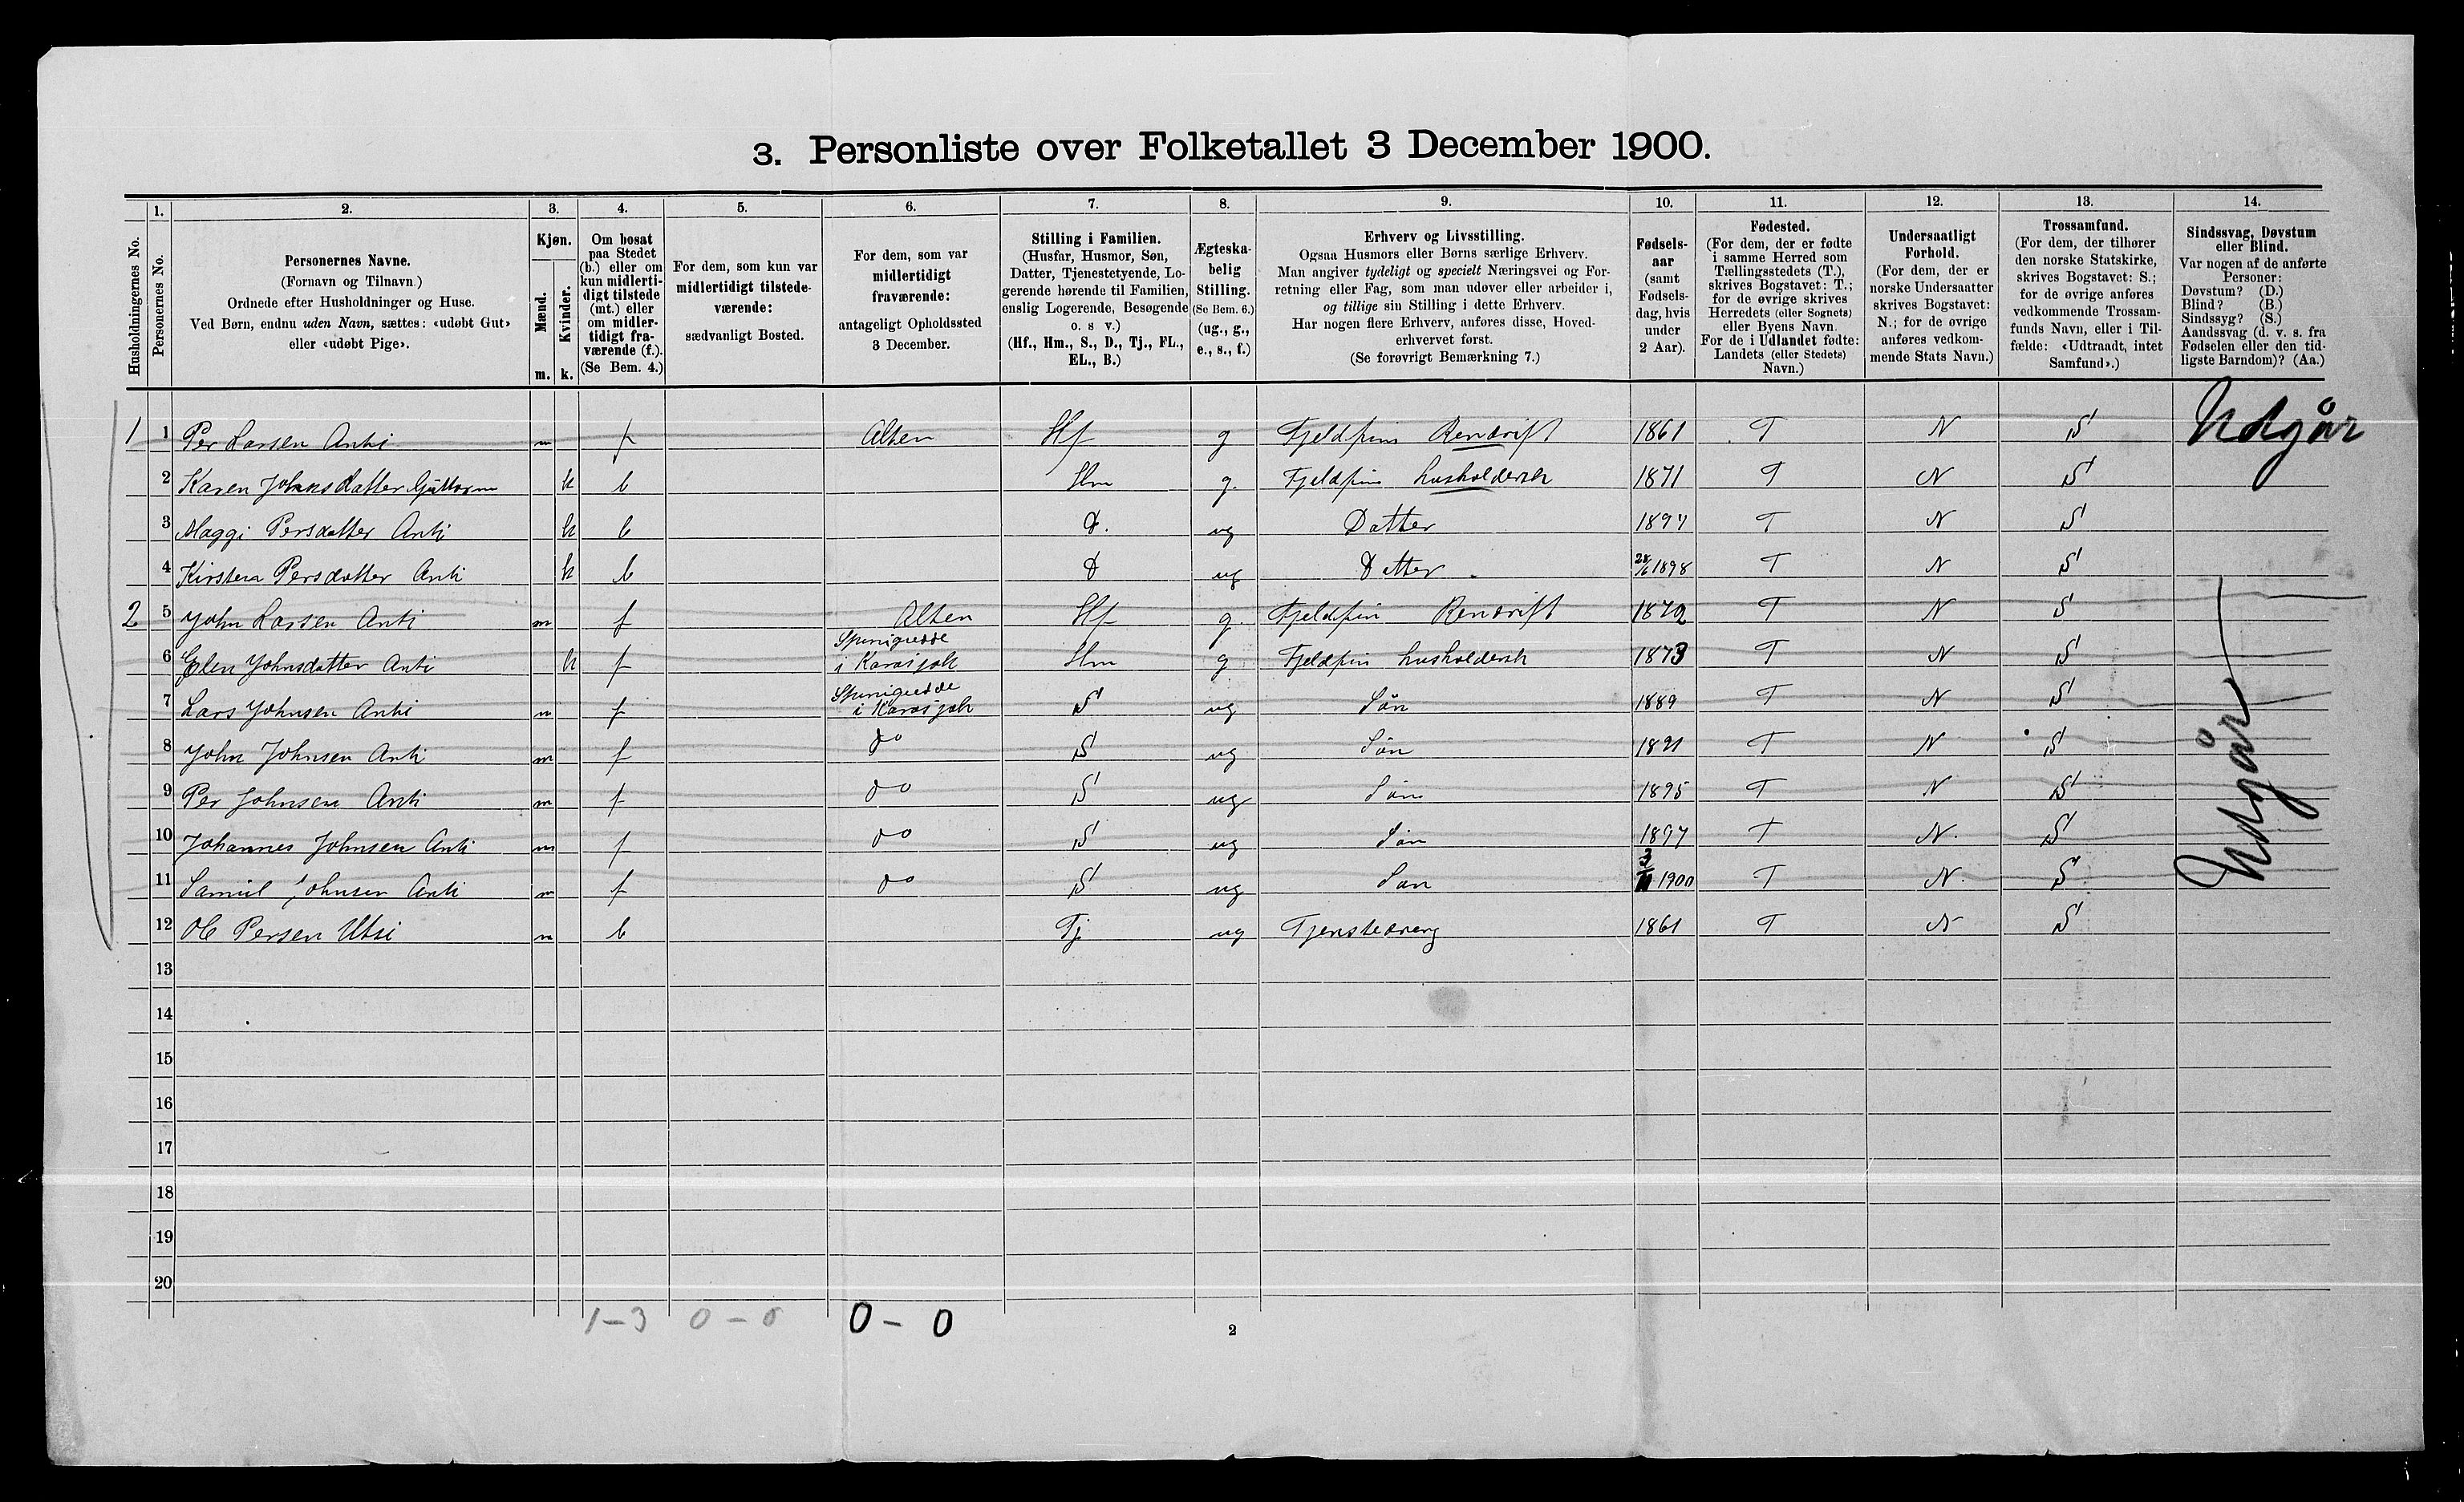 3. Personliste over Folketallet 3 December 1900.
1. 2. 3. 4. 5. 6. 7. 8. 9. 10. 11. 12. 13. 14.
Husholdningernes No.
Personernes No.
Personernes Navne.
(Fornavn og Tilnavn.)
Ordnede efter Husholdninger og Huse.
Ved Børn, endnu uden Navn, sættes: «udøbt Gut»
eller «udøbt Pige».
Kjøn.
Mænd.
Kvinder.
m. k.
Om bosat
paa Stedet
(b.) eller om
kun midlerti-
digt tilstede
(mt.) eller
om midler-
tidigt fra-
værende (f.).
(Se Bem. 4.)
For dem, som kun var
midlertidigt tilstede-
værende:
sædvanligt Bosted.
For dem, som var
midlertidigt
fraværende:
antageligt Opholdssted
3 December.
Stilling i Familien.
(Husfar, Husmor, Søn,
Datter, Tjenestetyende, Lo-
gerende hørende til Familien,
enslig Logerende, Besøgende
o. s v.)
(Hf., Hm., S., D., Tj., FL.,
EL., B.)
Ægteska-
belig
Stilling.
(Se Bem. 6.)
(ug., g.,
e., s., f.)
Erhverv og Livsstilling.
Ogsaa Husmors eller Børns særlige Erhverv.
Man angiver tydeligt og specielt Næringsvei og For-
retning eller Fag, som man udøver eller arbeider i,
og tillige sin Stilling i dette Erhverv.
Har nogen flere Erhverv, anføres disse, Hoved-
erhvervet først.
(Se forøvrigt Bemærkning 7.)
Fødsels-
aar
(samt
Fødsels-
dag, hvis
under
2 Aar).
Fødested.
(For dem, der er fødte
i samme Herred som
Tællingsstedets (T.),
skrives Bogstavet: T.;
for de øvrige skrives
Herredets (eller Sognets)
eller Byens Navn.
For de i Udlandet fødte:
Landets (eller Stedets)
Navn.)
Undersaatligt
Forhold.
(For dem, der er
norske Undersaatter
skrives Bogstavet:
N.; for de øvrige
anføres vedkom-
mende Stats Navn.)
Trossamfund.
(For dem, der tilhører
den norske Statskirke,
skrives Bogstavet: S.;
for de øvrige anføres
vedkommende Trossam-
funds Navn, eller i Til-
fælde: «Udtraadt, intet
Samfund».)
Sindssvag, Døvstum
eller Blind.
Var nogen af de anførte
Personer:
Døvstum? (D.)
Blind? (B.)
Sindssyg? (S.)
Aandssvag (d. v. s. fra
Fødselen eller den tid-
ligste Barndom)? (Aa.)
1 1 Per Larsen Anti m f Alten Hf g Fjeldfin Rendrift 1861 T N S Udgår
2 Karen Johnsdatter k b Hm g. Fjeldfin husholdersk 1871 T N S
3 Maggi Persdatter Anti k b D. ug Datter 1894 T N S
4 Kirsten Persdatter Anti k b D ug Datter 1898 T N S
2 5 John Larsen Anti m f Alten Hf g. Fjeldfin Rendrift 1872 T N S
6 Elen Johnsdatter Anti k f i Karasjok Hm g Fjeldfin husholdersk 1873 T N S
7 Lars Johnsen Anti m f i Karasjok S ug Søn 1889 T N S
8 John Johnsen Anti m f do S ug Søn 1891 T N S
9 Per Johnsen Anti m f do S ug Søn 1895 T N S
10 Johannes Johnsen Anti m f do S ug Søn 1897 T N. S
11 Samuel Johnsen Anti m f do S ug Søn 1900 T N. S
12 Ole Persen Utsi m b Tj ug Tjenstedreng 1861 T N S
Udgår
13
14
15
16
17
18
19
20
1-3 0-0 0-0
2